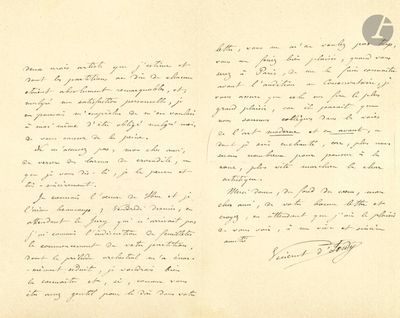 deux mais artiste que j'estime et
dont les partitions au dire de chacun
étaient absolument remarquables, et,
malgré ma satisfaction personnelle, je
en pouvais m'empêcher de m'en vouloir
à moi même d'être obligé malgré moi,
de vous causer de la peine.
Ne m'accusez pas, mon cher ami,
de verser des larmes de crocodile, ce
que je vous dis-là, je le pense et
très-sincèrement.
Je connais l'œuvre de et je
l'aime beaucoup, Vendredi dernier, en
attendant le Jury qui n'arrivait pas
j'ai commis l'indiscrétion de feuilleter
le commencement de votre partition,
dont le prélude orchestral m'a énor-
mément séduit, je voudrais bien
la connaître et, si, comme vous
êtes assez gentil pour le dire dans votre
lettre, vous ne m'en voulez pas trop,
vous me feriez bien plaisir, quand vous
serez à Paris, de me la faire connaître
avant l'audition au Conservatoire, je
vous assure que cela me fera le plus
grand plaisir, car il paraît que
nous sommes collègues dans la voie
de l'art moderne et en avant, ce
dont je suis enchanté, car, plus nous
serons nombreux pour pousser à la
roue, plus vite marchera le char
artistique.
Merci donc, du fond du cœur, mon
cher ami, de votre bonne lettre et
croyez, en attendant que j'aie le plaisir
de vous voir, à ma vive et sincère
amitié
Vincent d'Indy